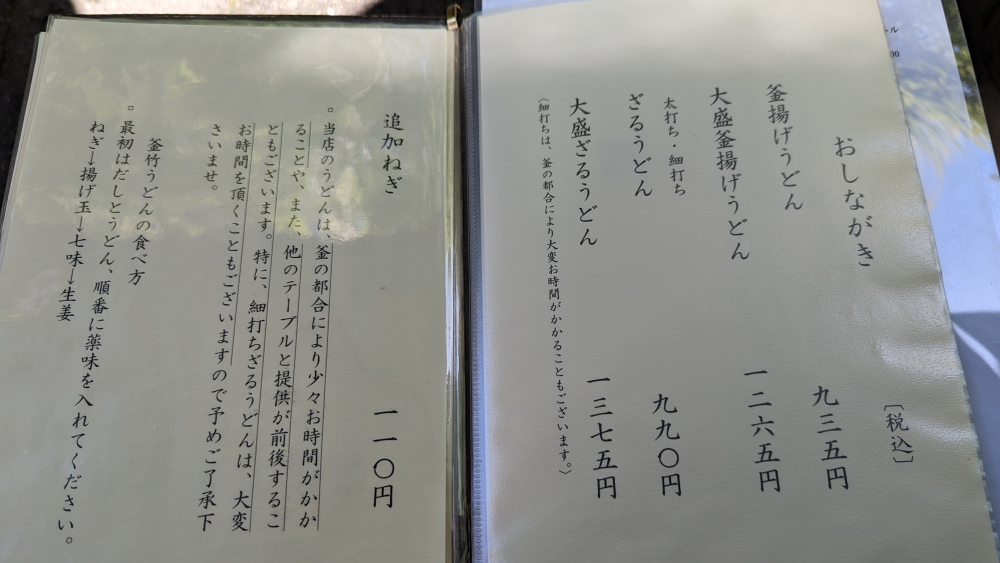 おしながき
〔税込〕
釜揚げうどん 九三五円
大盛釜揚げうどん 一二六五円
太打ち・細打ち
ざるうどん 九九〇円
大盛ざるうどん 一三七五円
（細打ちは、釜の都合により大変お時間がかかることもございます。）
追加ねぎ 一一〇円
▫ 当店のうどんは、釜の都合により少々お時間がかか
ることや、また、他のテーブルと提供が前後するこ
ともございます。特に、細打ちざるうどんは、大変
お時間を頂くこともございますので予めご了承下
さいませ。
釜竹うどんの食べ方
▫ 最初はだしとうどん、順番に薬味を入れてください。
ねぎ→揚げ玉→七味→生姜